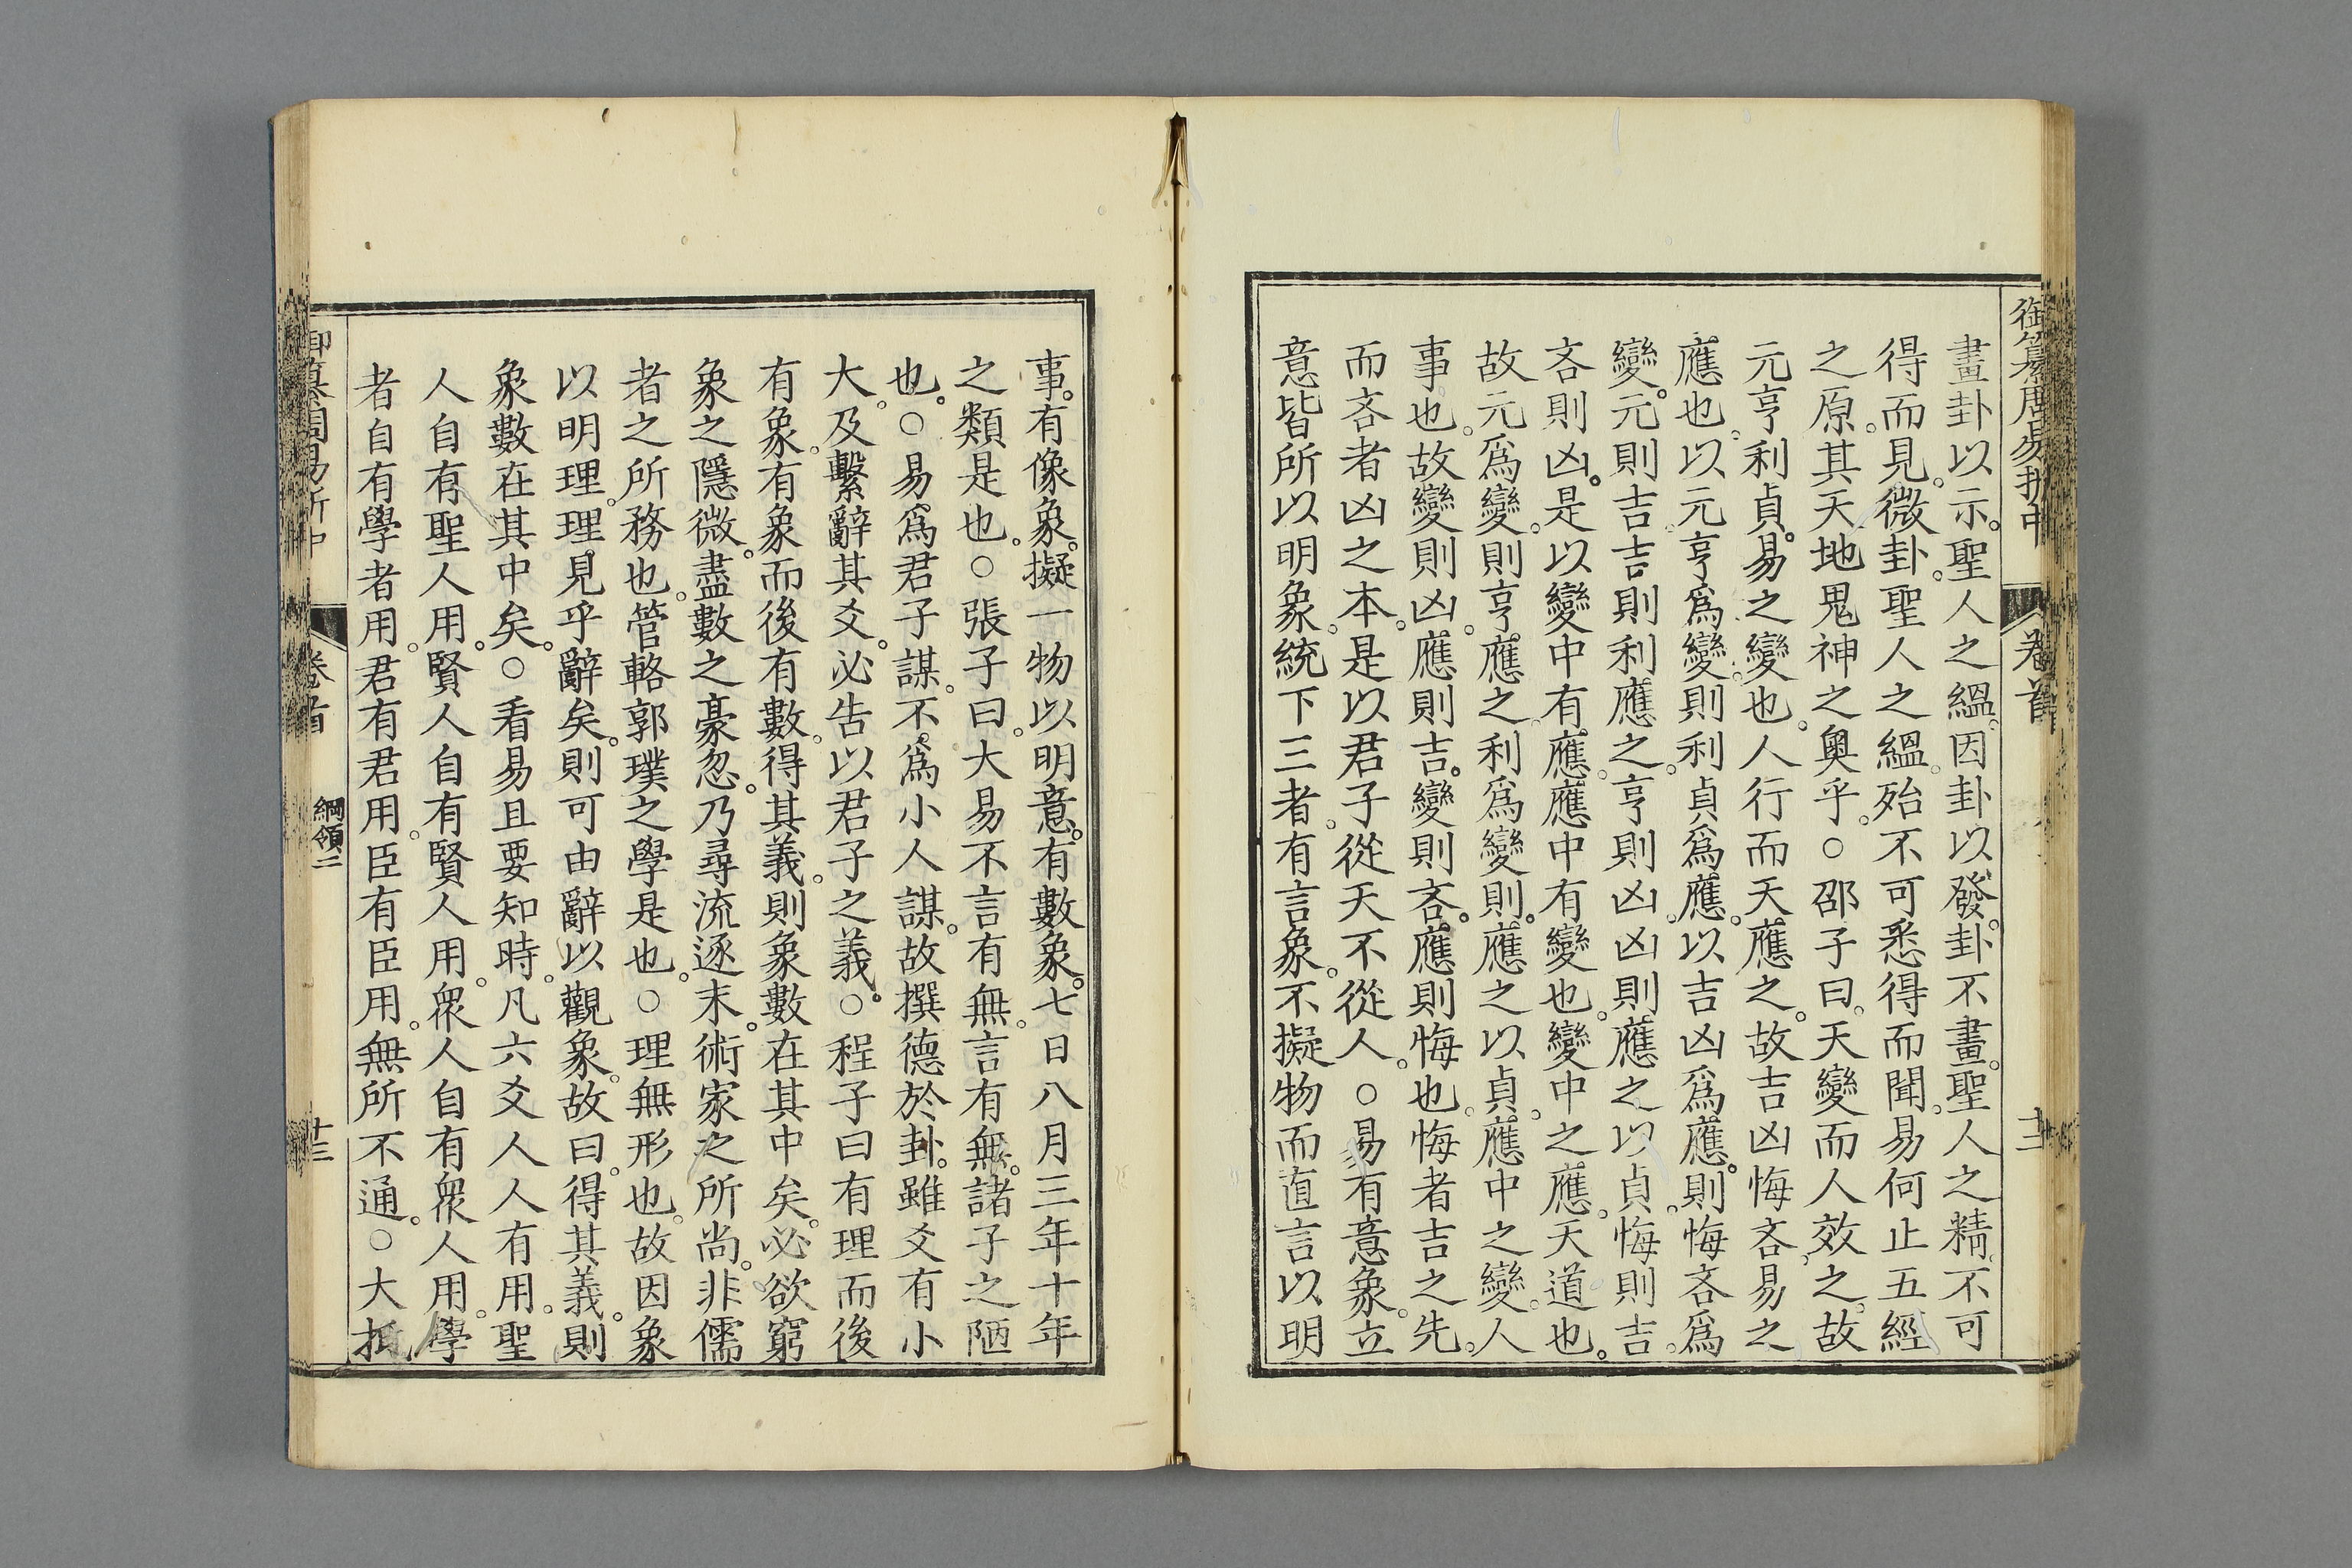 御纂周易折中 卷首 十二
畫卦以示。聖人之縕。因卦以發。卦不畫。聖人之精。不可
得而見。微卦。聖人之縕。殆不可悉得而聞。易何止五經
之原。其天地鬼神之奧乎。○邵子曰。天變而人效之。故
元亨利貞。易之變也。人行而天應之。故吉凶悔吝。易之
應也。以元亨爲變。則利貞爲應。以吉凶爲應。則悔吝爲
變。元則吉。吉則利應之。亨則凶。凶則應之以貞。悔則吉。
吝則凶。是以變中有應。應中有變也。變中之應。天道也。
故元爲變。則亨應之。利爲變。則應之以貞。應中之變。人
事也。故變則凶。應則吉。變則吝。應則悔也。悔者吉之先。
而吝者凶之本。是以君子從天不從人。○易有意象。立
意皆所以明象。統下三者。有言象。不擬物而直言以明
事。有像象。擬一物以明意。有數象。七日八月三年十年
之類是也。○張子曰。大易不言有無。言有無。諸子之陋
也。○易爲君子謀。不爲小人謀。故撰德於卦。雖爻有小
大。及繫辭其爻。必告以君子之義。○程子曰有理而後
有象。有象而後有數。得其義。則象數在其中矣。必欲窮
象之隱微。盡數之豪忽。乃尋流逐末。術家之所尚。非儒
者之所務也。管輅郭璞之學是也。○理無形也。故因象
以明理。理見乎辭矣。則可由辭以觀象。故曰。得其義。則
象數在其中矣。○看易且要知時。凡六爻人人有用。聖
人自有聖人用。賢人自有賢人用。衆人自有衆人用。學
者自有學者用。君有君用。臣有臣用。無所不通。○大抵
御纂周易折中 卷首 綱領二 十三